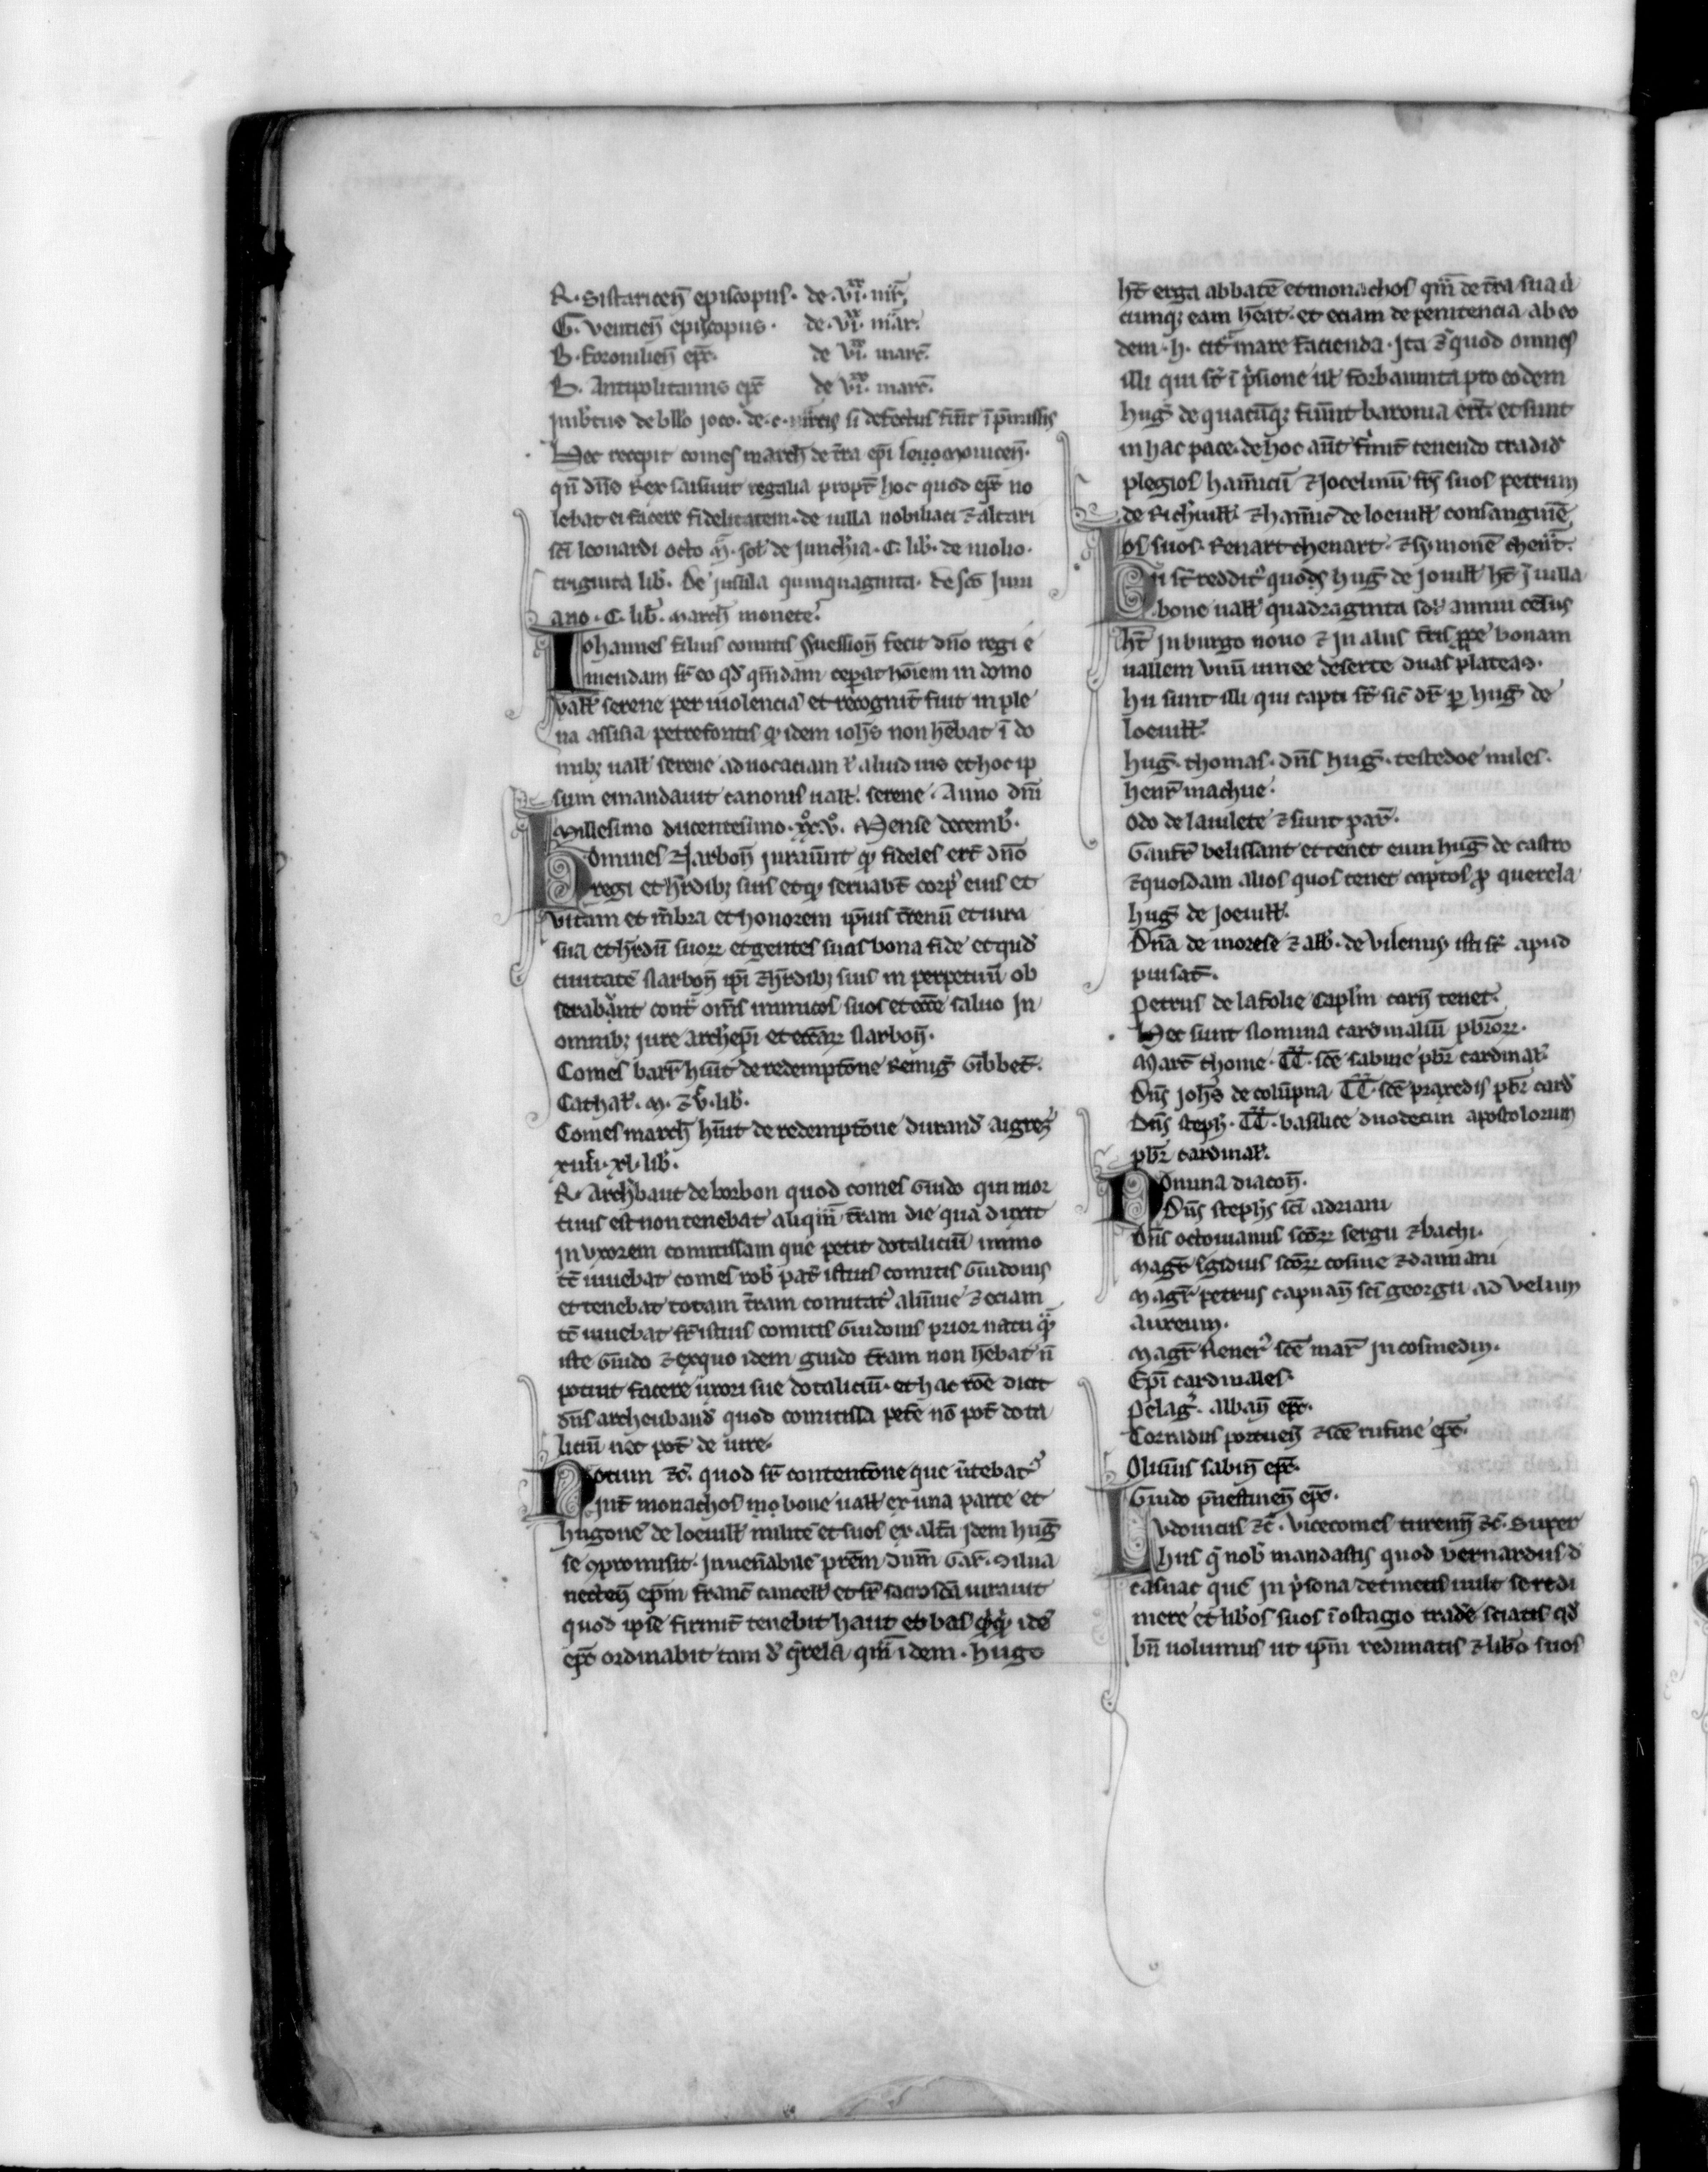 R. Sistaricen̄ episcopus. de .vi.xx mr̄.
G. Vencien̄ episcopus. de .vi.xx mar̄.
B. foroiulien̄ ep̄c. de vi.xx marc̄.
B. Antipolitanus ep̄c de vi.xx marc̄.
de .c. mrcis si defectus fu̾it ī p̄missis
Hec recepit comes march̄ de t̄ra ep̄i lemouicen̄.
qn̄ dn̄s Rex saisiuit regalia propt̄ hoc quod ep̄c no
lebat ei facere fidelitatem. de uilla nobiliaci ⁊ altari
sc̄i leonardi octo m̄. sol̄ de Junch̾ia .C. lib̾. de molio.
triginta lib̾. De Jusula quinquaginta. de sc̄o Juni
ano .C. lib̾. march̄ monete.
Iohannes filius comitis Suession̄ fecit dn̄o regi e
mendam sr̄ eo qd̾ quemdam ceperat hōiem in domo
vall̄ serene per uiolenciā et recognit̄ fuit in ple
na assisia petrefontis qͥ idem ioh̄s non hēbat ī do
mibꝫ uall̄ serene aduocaciam ł aliud ius et hoc ip
sum emandauit canonis uall̄. serene. Anno dn̄i
Millesimo ducentesimo .xx.v̊. Mense decemb̾.
Homines Narbon̄ iurauer̄t qͥ fideles er̄t dn̄o
regi et h̄edibꝫ suis et qͥ seruab̄t corpꝰ eius et
vitam et m̄bra et honorem ip̄ius t̄renū et iura
sua et h̄edū suoꝝ et gentes suas bona fide et qud̾
ciuitatē Narbon̄ ip̄i ⁊ h̄edibꝫ suis in perpetuū ob
serabūnt cont̾ om̄s inimicos suos et ecc̄e saluo in
omnibꝫ jure archiep̄i et ecc̄aꝝ Narbon̄.
Comes barr̄ hūit de redemptōne Remig̾ Gibbet̄.
Cathal̾. M. ⁊ v̄ᶜ. lib̾.
Comes march̄ hūit de redemptōne durand̾ Aigreꝫ
xiiii. xl. lib̾.
R. Archēbaut de borbon quod comes Guido qui mor
tuus est non tenebat aliquam̄ t̄ram die qua duxit
in vxorem comitissam que petit dotaliciū immo
tc̄ uiuebat comes rob̾ pat̾ istius comitis Guidonis
et tenebat totam t̄ram comitatꝰ aluernie ⁊ eciam
tc̄ uiuebat fr̄ istius comitis Guidonis prior natu qͣ
iste Guido ⁊ ex quo idem guido t̄ram non hēbat n̄
potuit facere uxori sue dotaliciū. et hac rōe dicit
dn̄s archenbaud̾ quod comitissa petē nō pot̄ dota
liciū nec pot̄ de iure.
Notum ⁊c̄. quod sr̄ contentōne que u̾tebatᷣ
int̾ monachos bone uall̄ ex una parte et
hugonē de loeuill̄ militē et suos ex alt̄a Jdem hug̾
se ꝯpromisit. in uenabilē pr̄em dn̄m Gar̄. Silua
necten̄ ep̄m franc̄ cancell̾ et sr̄ sacro sc̄a iurauit
quod ipse firmit̾ tenebit haut et bas idē
ep̄c ordinabit tam d̾ q̄rela quam̄ idem. hugo
hēt erga abbatē et monachos qm̄ de t̄ra sua ū
cumqꝫ eam hēat. et eciam de penitencia ab eo
dem .h. cit̄ mare facienda. Jta ⁊ quod omnes
illi qui sr̄ ī p̾sione ul̾ forbanniti pro eodem
hug̾ de quacūqꝫ fu̾int baronia er̄t. et sunt
in hac pace. de hoc aut̄ firmit̾ tenendo tradid̾
plegios ham̄icū ⁊ Jocelinū fr̄s suos petrum
de Rich̾uill̄ ⁊ ham̄ic de loeuill̄ consanguinē
os suos. Renart chenart. ⁊ symonē chen̄t.
Hii sr̄ redditꝰ quos hug̾ de jouill̄ hēt ī uilla
bone uall̄ quadraginta sol̾ annui cēsus
hēt in burgo nouo ⁊ in aliis t̄ris ꝓpe bonam
uallem vnū iunee deserte duas plateas.
hii sunt illi qui capti sr̄ sic̄ dr̄ ꝑ hug̾ de
loeuill̄.
hug̾. thomas. dn̄s hug̾. testedoe miles.
henr̄ machue.
Odo de lauilete ⁊ sunt par̄.
Gaufr̄ belissant et tenet eum hug̾ de castro
⁊ quosdam alios quos tenet captos ꝓ querela
hug̾ de joeuill̄.
Dn̄a de morese ⁊ alb̾. de vilenus isti sr̄ apud
puisat̄.
petrus de lafolie capl̄m carn̄ tenet.
Hec sunt Nomina cardinaliū pb̄roꝝ.
Mart̄ thome .TT. sc̄e sabine pb̄r cardinal̾.
Dn̄s joh̄s de colūpna TT. sc̄e praxedis pb̄r card̾
Dn̄s steph̄. TT. basilice duodecim apostolorum
pb̄r cardinal̾.
Nomina diacon̄.
Dn̄s steph̄s sc̄i adriani
Dn̄s octouianus sc̄oꝝ sergii ⁊ bachi.
Magr̄ egidius sc̄oꝝ cosme ⁊ damiani
Magr̄ petrus capuan̄ sc̄i georgii ad velum
aureum.
Magr̄ Renerꝰ sc̄e mar̄ in cosmedin.
Ep̄i cardinales.
Pelagꝰ. alban̄ ep̄c.
Corradus portuen̄ ⁊ sc̄e rufine ep̄c.
Oliu̾us sabin̄ ep̄c.
Guido p̄nestinen̄ ep̄c.
Ludouicus ⁊c̄. vicecomes turenn̄ ⁊c̄. Super
hiis q̄ nob̾ mandastis quod bernardus d̾
casnac quē in p̾sona detinetis uult se redi
mere et lib̾os suos ī ostagio trad̾e sciatis qd̾
bn̄ uolumus ut ip̄m redimatis ⁊ lib̾o suos